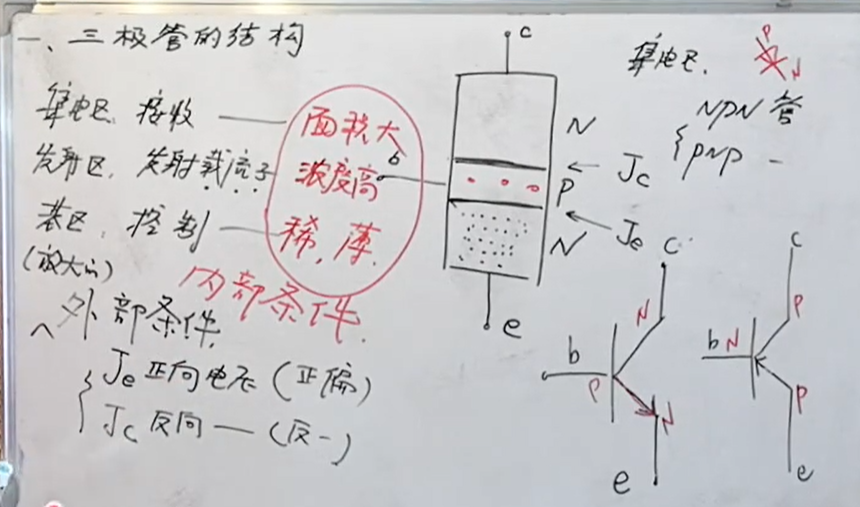 一、三极管的结构
集电区、接收 —— 面积大
发射区、发射载流子 — 浓度高
基区、控制 —— 稀,薄
内部条件.
(放大的)
外部条件.
Je 正向电压 (正偏)
Jc 反向 — (反—)
c
b
e
N
P
N
← Jc
← Je
集电区.
P
N
NPN 管
PNP —
c
N
b
P
N
e
c
P
b N
P
e